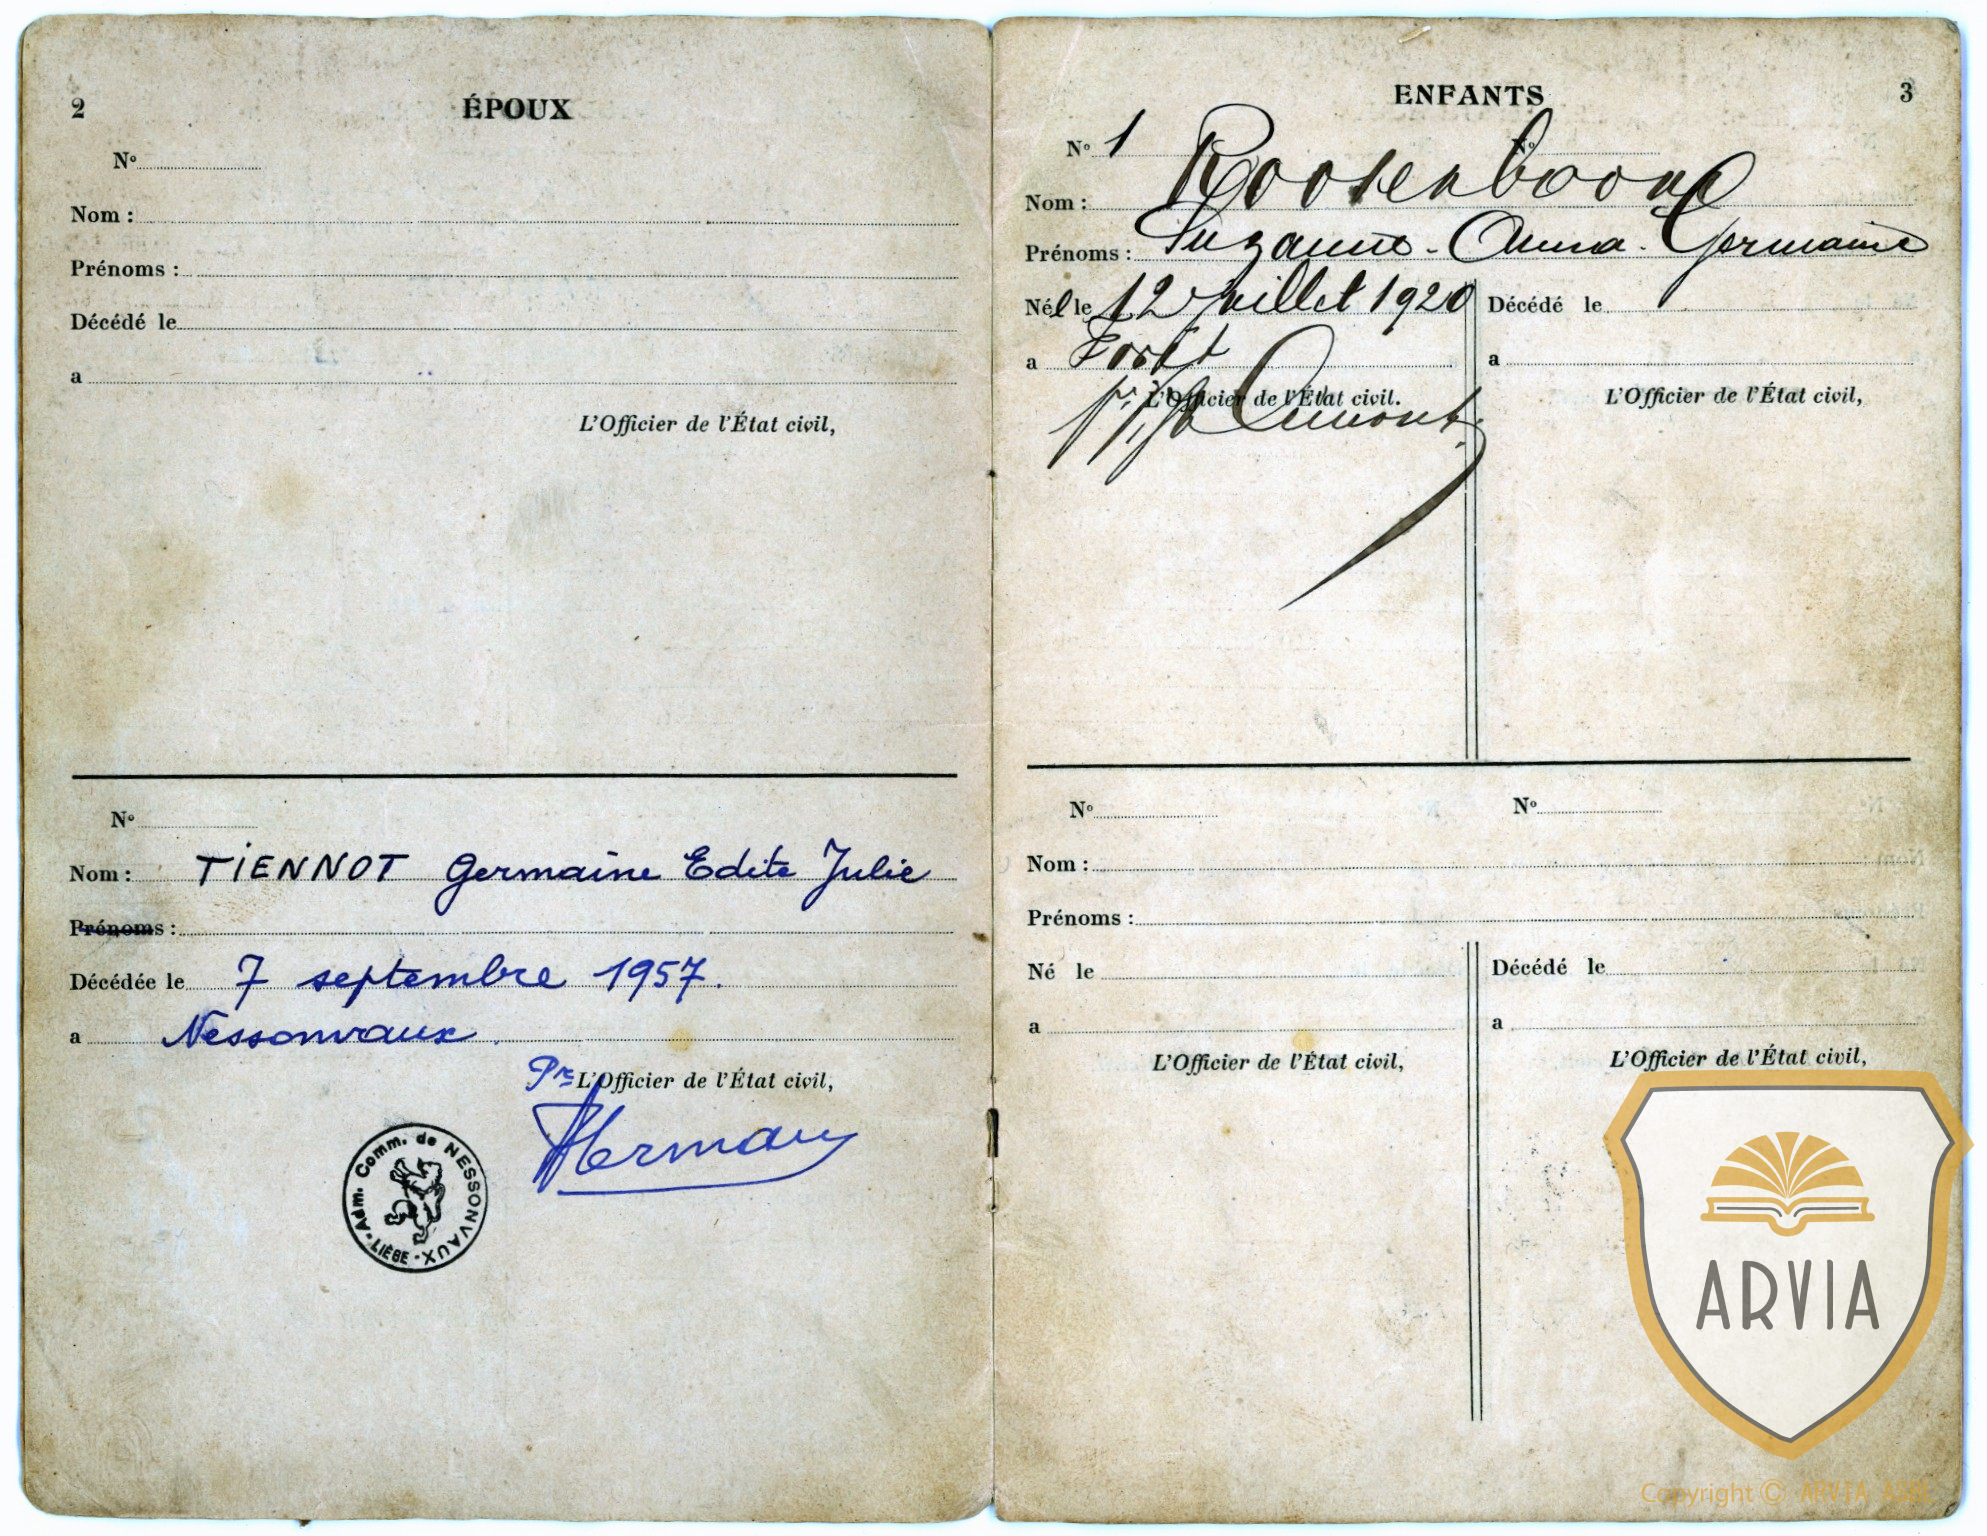 2
ÉPOUX
Nº
Nom :
Prénoms :
Décédé le
a
L'Officier de l'État civil,
Nº
Nom : TIENNOT Germaine Edite Julie
Prénoms :
Décédée le 7 septembre 1957.
a Nessonvaux.
Pr L'Officier de l'État civil,
Herman
Adm. Comm. de NESSONVAUX - LIÈGE -
ENFANTS
3
Nº 1
Nº
Nom : Roosenboom
Prénoms : Suzanne - Anna - Germaine
Néé le 12 Juillet 1920
Décédé le
a Forêt
a
L'Officier de l'État civil.
L'Officier de l'État civil,
Nº
Nº
Nom :
Prénoms :
Né le
Décédé le
a
a
L'Officier de l'État civil,
L'Officier de l'État civil,
ARVIA
Copyright © ARVIA ASBL